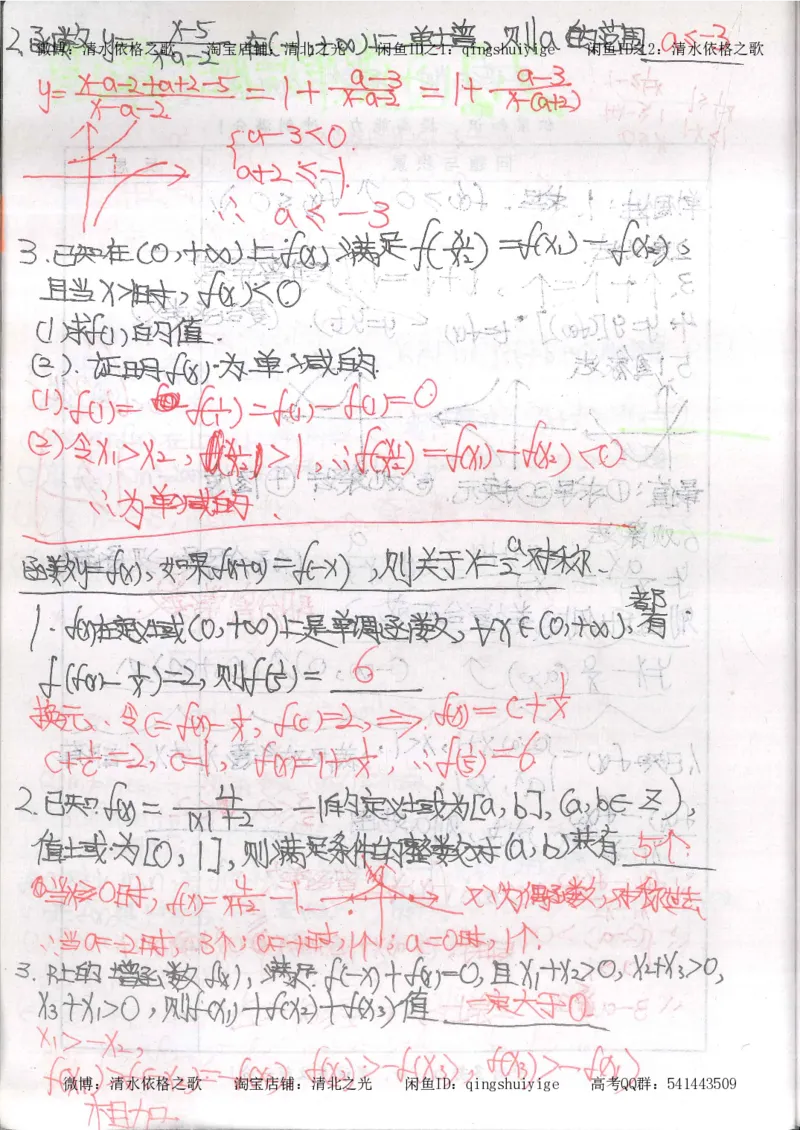 2.函数y=(x-5)/(x-a-2)在(-1,+∞)上单增,则a的范围 a≤-3
微博:清水依格之歌 淘宝店铺:清北之光 闲鱼ID之1:qingshuiyige 闲鱼ID之2:清水依格之歌
y=(x-a-2+a+2-5)/(x-a-2)=1+(a-3)/(x-a-2)=1+(a-3)/(x-(a+2))
{a-3<0
a+2≤-1.
∴ a≤-3
3.已知在(0,+∞)上f(x)满足f(x₁/x₂)=f(x₁)-f(x₂),
且当x>1时,f(x)<0
(1)求f(1)的值.
(2).证明f(x)为单减的.
(1).f(1)=f(1/1)=f(1)-f(1)=0
(2)令x₁>x₂,(x₁/x₂)>1,∴f(x₁/x₂)=f(x₁)-f(x₂)<0
∴为单减的.
函数y=f(x),如果f(x+a)=f(-x),则关于x=a/2对称.
1.f(x)在定义域(0,+∞)上是单调函数,∀x∈(0,+∞),都有
f(f(x)-1/x)=2,则f(1/5)=6
换元,令c=f(x)-1/x,f(c)=2,=>f(x)=c+1/x
c+1/c=2,c=1,f(x)=1+1/x,∴f(1/5)=6
2.已知f(x)=4/(|x|+2)-1的定义域为[a,b],(a,b∈Z),
值域为[0,1],则满足条件的整数对(a,b)共有 5个.
当x≥0时,f(x)=4/(x+2)-1. 又∵为偶函数,对称过去
∴当a=-2时,3个;a=-1时,1个;a=0时,1个.
3.R上的增函数f(x),满足f(-x)+f(x)=0,且x₁+x₂>0,x₂+x₃>0,
x₃+x₁>0,则f(x₁)+f(x₂)+f(x₃)值 一定大于0
x₁>-x₂,
f(x₁)>f(-x₂)=-f(x₂),f(x₂)>-f(x₃),f(x₃)>-f(x₁)
微博:清水依格之歌 淘宝店铺:清北之光 闲鱼ID:qingshuiyige 高考QQ群:541443509
相加